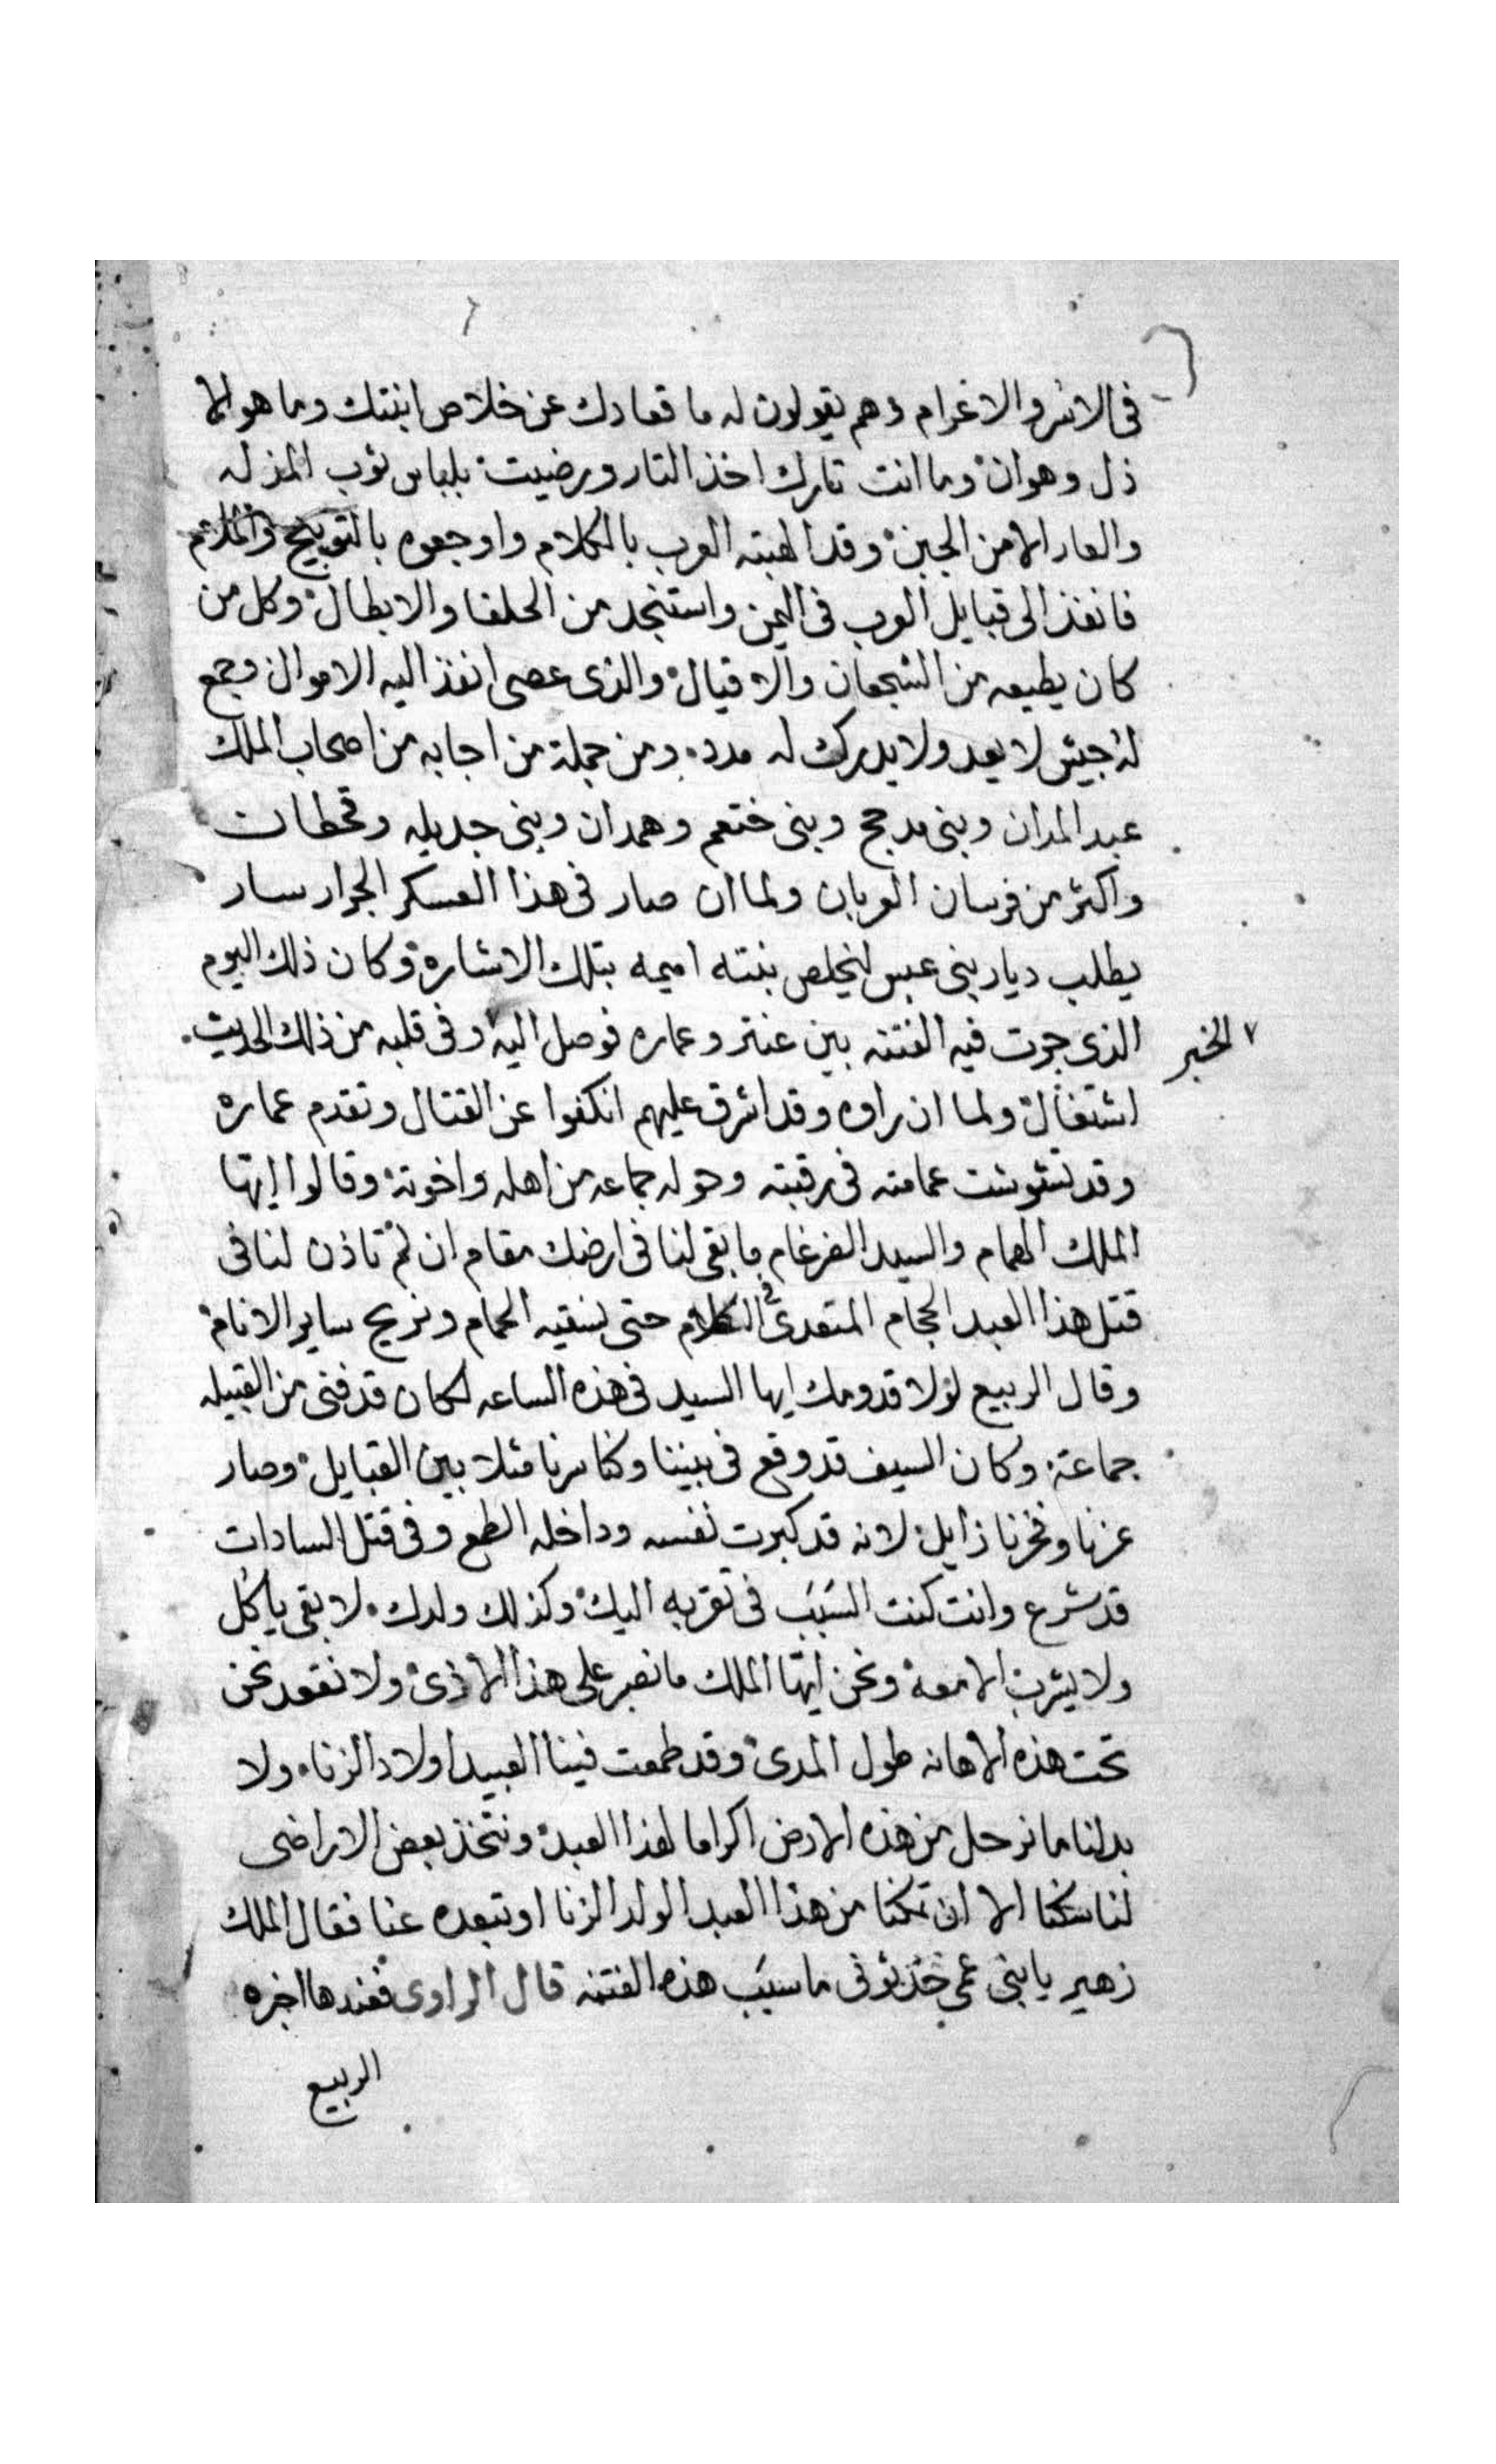 فى الاسر والاغرام وهم يقولون له ما قعادك عن خلاص ابنتك وما هو الا
ذل وهوان وما انت تارك اخذ الثار ورضيت بلباس ثوب المذله
والعار الا من الجبن وقد الهبته العرب بالكلام واوجعوه بالتوبيخ والملام
فانفذ الى قبايل العرب فى اليمن واستنجد من الحلفا والابطال وكل من
كان يطيعه من الشجعان والاقيال والذى عصى انفذ اليه الاموال وجمع
له جيش لا يعد ولا يدرك له مدد ومن جملة من اجابه من اصحاب الملك
عبد المدان وبنى مدحج وبنى ختعم وهمدان وبنى جديله وقحطان
واكثر من فرسان العربان ولما ان صار فى هذا العسكر الجرار سار
يطلب ديار بنى عبس ليخلص بنته اميمه بتلك الاشاره وكان ذلك اليوم
الذى جرت فيه الفتنه بين عنتر وعماره فوصل اليه وفى قلبه من ذلك الحديث
٧ الخبر
اشتغال ولما ان راوه وقد اشرف عليهم انكفوا عن القتال وتقدم عماره
وقد تشوشت عمامته فى رقبته وحوله جماعه من اهله واخوته وقالوا ايها
الملك الهمام والسيد الضرغام ما بقى لنا فى ارضك مقام ان لم تاذن لنا فى
قتل هذا العبد الحجام المتعدى فى الكلام حتى نسقيه الحمام ونريح ساير الانام
وقال الربيع لولا قدومك ايها السيد فى هذه الساعه لكان قد فنى من القبيله
جماعة وكان السيف قد وقع فى بيننا وكنا سرنا مثلا بين القبايل وصار
عزنا وفخرنا زايل لانه قد كبرت نفسه وداخله الطمع وفى قتل السادات
قد شرع وانت كنت السبب فى تقربه اليك وكذلك ولدك لا بقى ياكل
ولا يشرب الا معه ونحن ايها الملك ما نصبر على هذا الاذى ولا نقعد نحن
تحت هذه الاهانه طول المدى وقد طمعت فينا العبيد اولاد الزنا ولا
بد لنا ما نرحل من هذه الارض اكراما لهذا العبد ونتخذ بعض الاراضى
لنا سكنا الا ان تمكنا من هذا العبد الولد الزنا او تبعده عنا فقال الملك
زهير يا بنى عمى حدثونى ما سبب هذه الفتنه قال الراوى فعندها اخبره
الربيع